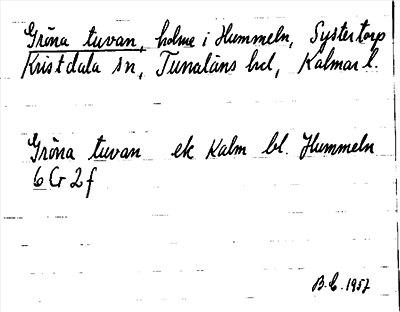 Gröna tuvan, holme i Hummeln, Systertorp
Kristdala sn, Tunaläns hd, Kalmar l.
Gröna tuvan ek Kalm bl. Hummeln
6 G 2 f
B.E. 1957